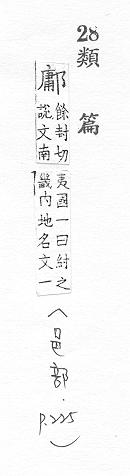 28 類篇
鄘
餘封切
說文南
夷國一曰紂之
畿內地名文一
(邑部. p.225)